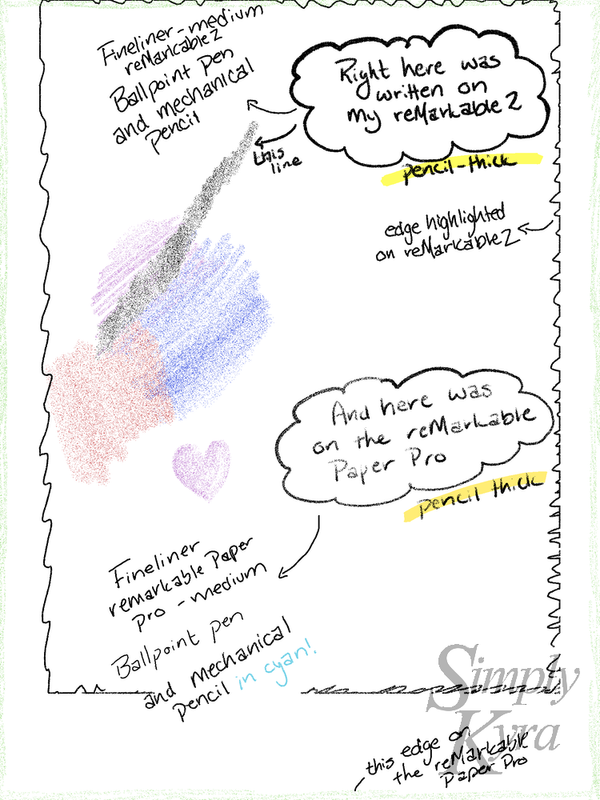 Fineliner-medium
reMarkable2
Ballpoint pen
and mechanical
pencil
Right here was
written on
my reMarkable 2
this
line
pencil-thick
edge highlighted
on reMarkable2
And here was
on the reMarkable
Paper Pro
pencil thick
Fineliner
remarkable Paper
Pro - medium
Ballpoint pen
and mechanical
pencil in cyan!
Simply
Kyra
this edge on
the reMarkable
Paper Pro